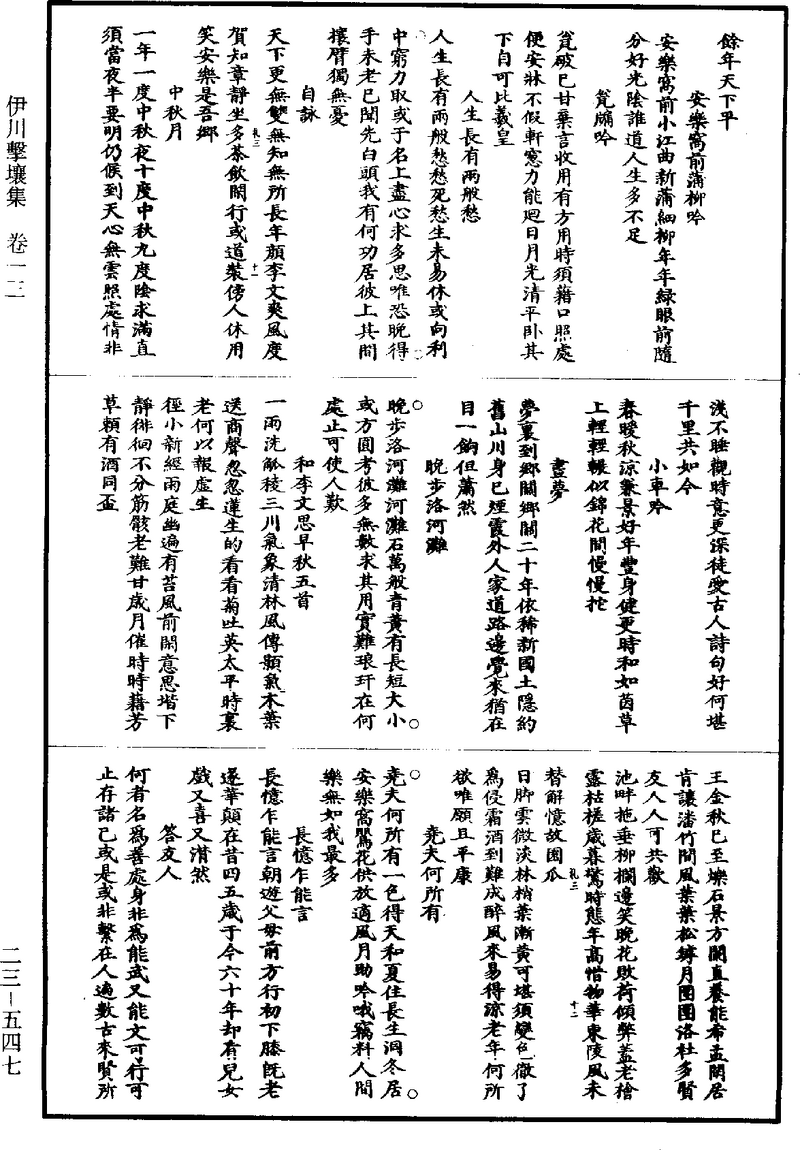 餘年天下平
安樂窩前蒲柳吟
安樂窩前小江曲新蒲細柳年年綠眼前隨
分好光陰誰道人生多不足
瓮牖吟
瓮破已甘棄言收用有方用時須藉口照處
便安牀不假軒窻力能迴日月光清平卧其
下自可比羲皇
人生長有兩般愁
人生長有兩般愁愁死愁生未易休或向利
中窮力取或于名上盡心求多思唯恐晚得
手未老已聞先白頭我有何功居彼上其間
攘臂獨無憂
自詠
天下更無雙無知無所長年顏李文爽風度
賀知章靜坐多茶飲閑行或道裝傍人休用
笑安樂是吾鄉
中秋月
一年一度中秋夜十度中秋九度陰求滿直
須當夜半要明仍候到天心無雲照處情非
淺不睡觀時意更深徒愛古人詩句好何堪
千里共如今
小車吟
春暖秋涼兼景好年豐身健更時和如茵草
上輕輕輾似錦花間慢慢挓
晝夢
夢裏到鄉關鄉關二十年依稀新國土隱約
舊山川身已煙霞外人家道路邊覺來猶在
目一餉但蕭然
晚步洛河灘
晚步洛河灘河灘石萬般青黃有長短大小
或方圓考彼多無數求其用實難琅玕在何
處止可使人歎
和李文思早秋五首
一雨洗觚稜三川氣象清林風傳顥氣木葉
送商聲忽忽蓮生的看看菊吐英太平時裏
老何以報虛生
徑小新經雨庭幽遍有苔風前閑意思堦下
靜徘徊不分筋骸老難甘歲月催時時藉芳
草頼有酒同盃
王金秋已至爍石景方闌直養能希孟閑居
肯讓潘竹間風葉葉松罅月團團洛社多賢
友人人可共歡
池畔拖垂柳欄邊笑晚花敗荷傾弊蓋老檜
露枯槎歲暮驚時態年高惜物華東陵風未
替解憶故園瓜
日脚雲微淡林梢葉漸黃可堪須變色徹了
爲侵霜酒到難成醉風來易得凉老年何所
欲唯願且平康
堯夫何所有
堯夫何所有一色得天和夏住長生洞冬居
安樂窩鶯花供放適風月助吟哦竊料人間
樂無如我最多
長憶乍能言
長憶乍能言朝遊父母前方行初下膝旣老
遂華顛在昔四五歲于今六十年却看兒女
戲又喜又潸然
答友人
何者名爲善處身非爲能武又能文可行可
止存諸己或是或非繫在人遍數古來賢所
伊川擊壤集 卷一三
二三－五四七